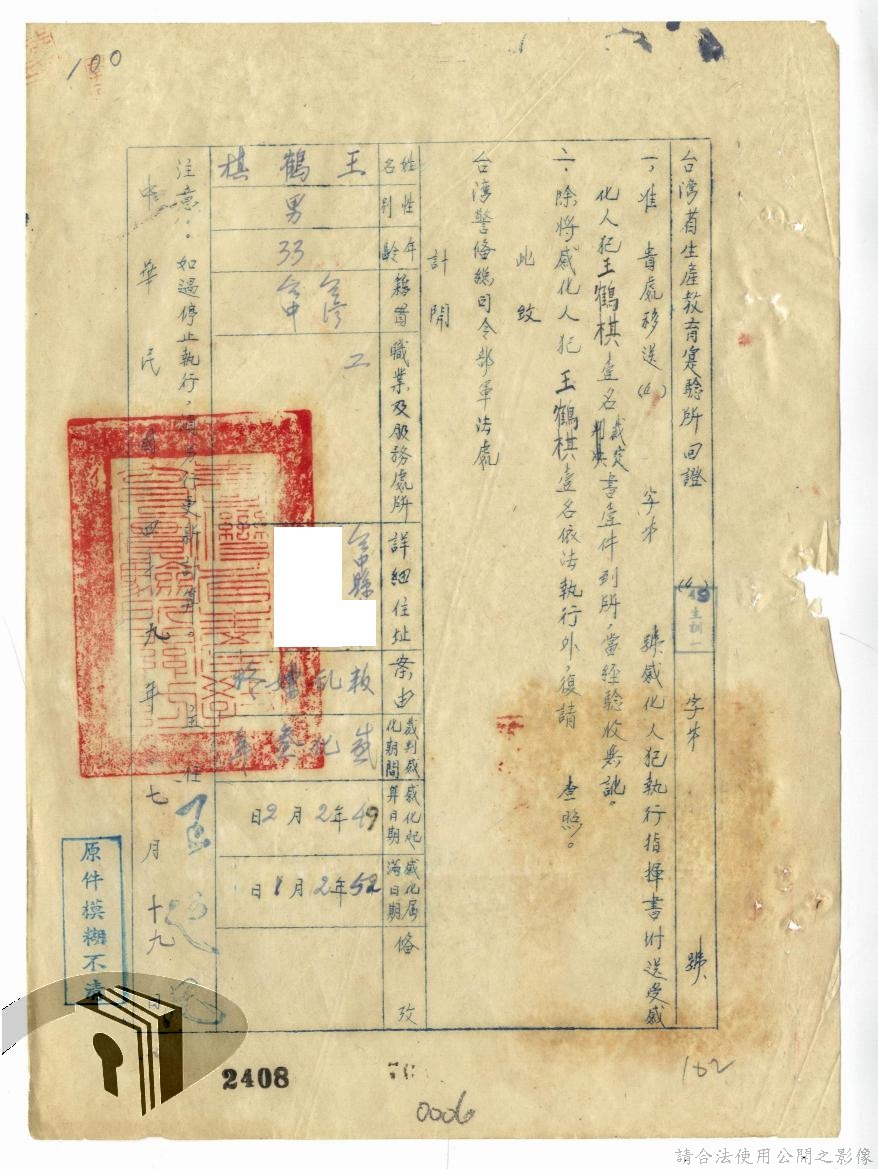 100
台湾省生產教育寔驗所回證 ( ) 49 生訓一 字第 號
一、准 貴處移送( ) 字第 號感化人犯執行指揮書附送受感
化人犯王鶴棋壹名裁定判決書壹件到所,當經驗收無訛。
二、除將感化人犯王鶴棋壹名依法執行外,復請 查照。
此致
台湾警俻總司令部軍法處
計開
姓名 王鶴棋
性別 男
年齡 33
籍貫 台湾台中
職業及服務處所 工
詳細住址 台中縣
案由 叛乱嫌疑
裁判感化期間 感化叁年
感化起算日期 49年2月2日
感化届滿日期 52年2月1日
俻攷
注意:如遇停止執行,須另行更新計算。
主任
中華民國四十九年七月十九日
原件模糊不清
2408
0006
102
請合法使用公開之影像